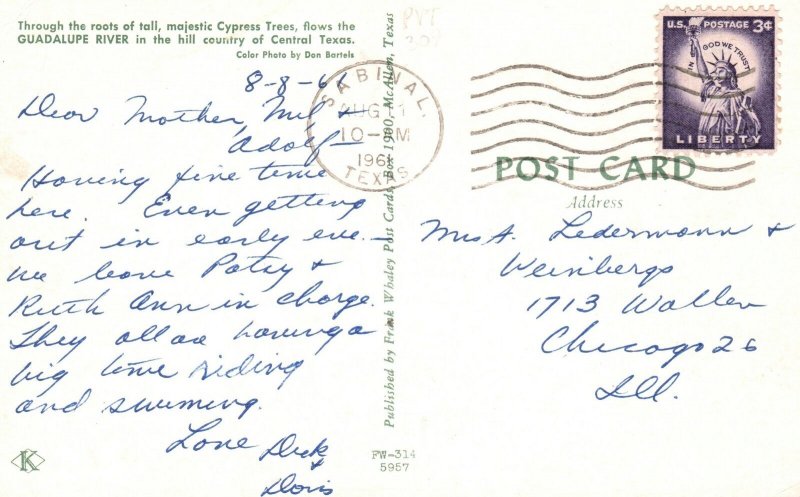 Through the roots of tall, majestic Cypress Trees, flows the
GUADALUPE RIVER in the hill country of Central Texas.
Color Photo by Don Bartels
8-8-61
Dear Mother, Mel &
Adolf—
Having fine time
here. Even getting
out in early eve.—
we leave Patsy &
Ruth Ann in charge.
They all are having a
big time riding
and swiming.
Love Dick
&
Doris
K
Published by Frank Whaley Post Cards, Box 1900, McAllen, Texas
FW-314
5957
SABINAL,
AUG
10-AM
1961
TEXAS
U.S. POSTAGE 3¢
IN GOD WE TRUST
LIBERTY
POST CARD
Address
Mrs A. Ledermann &
Weinbergs
1713 Wallen
Chicago 26
Ill.